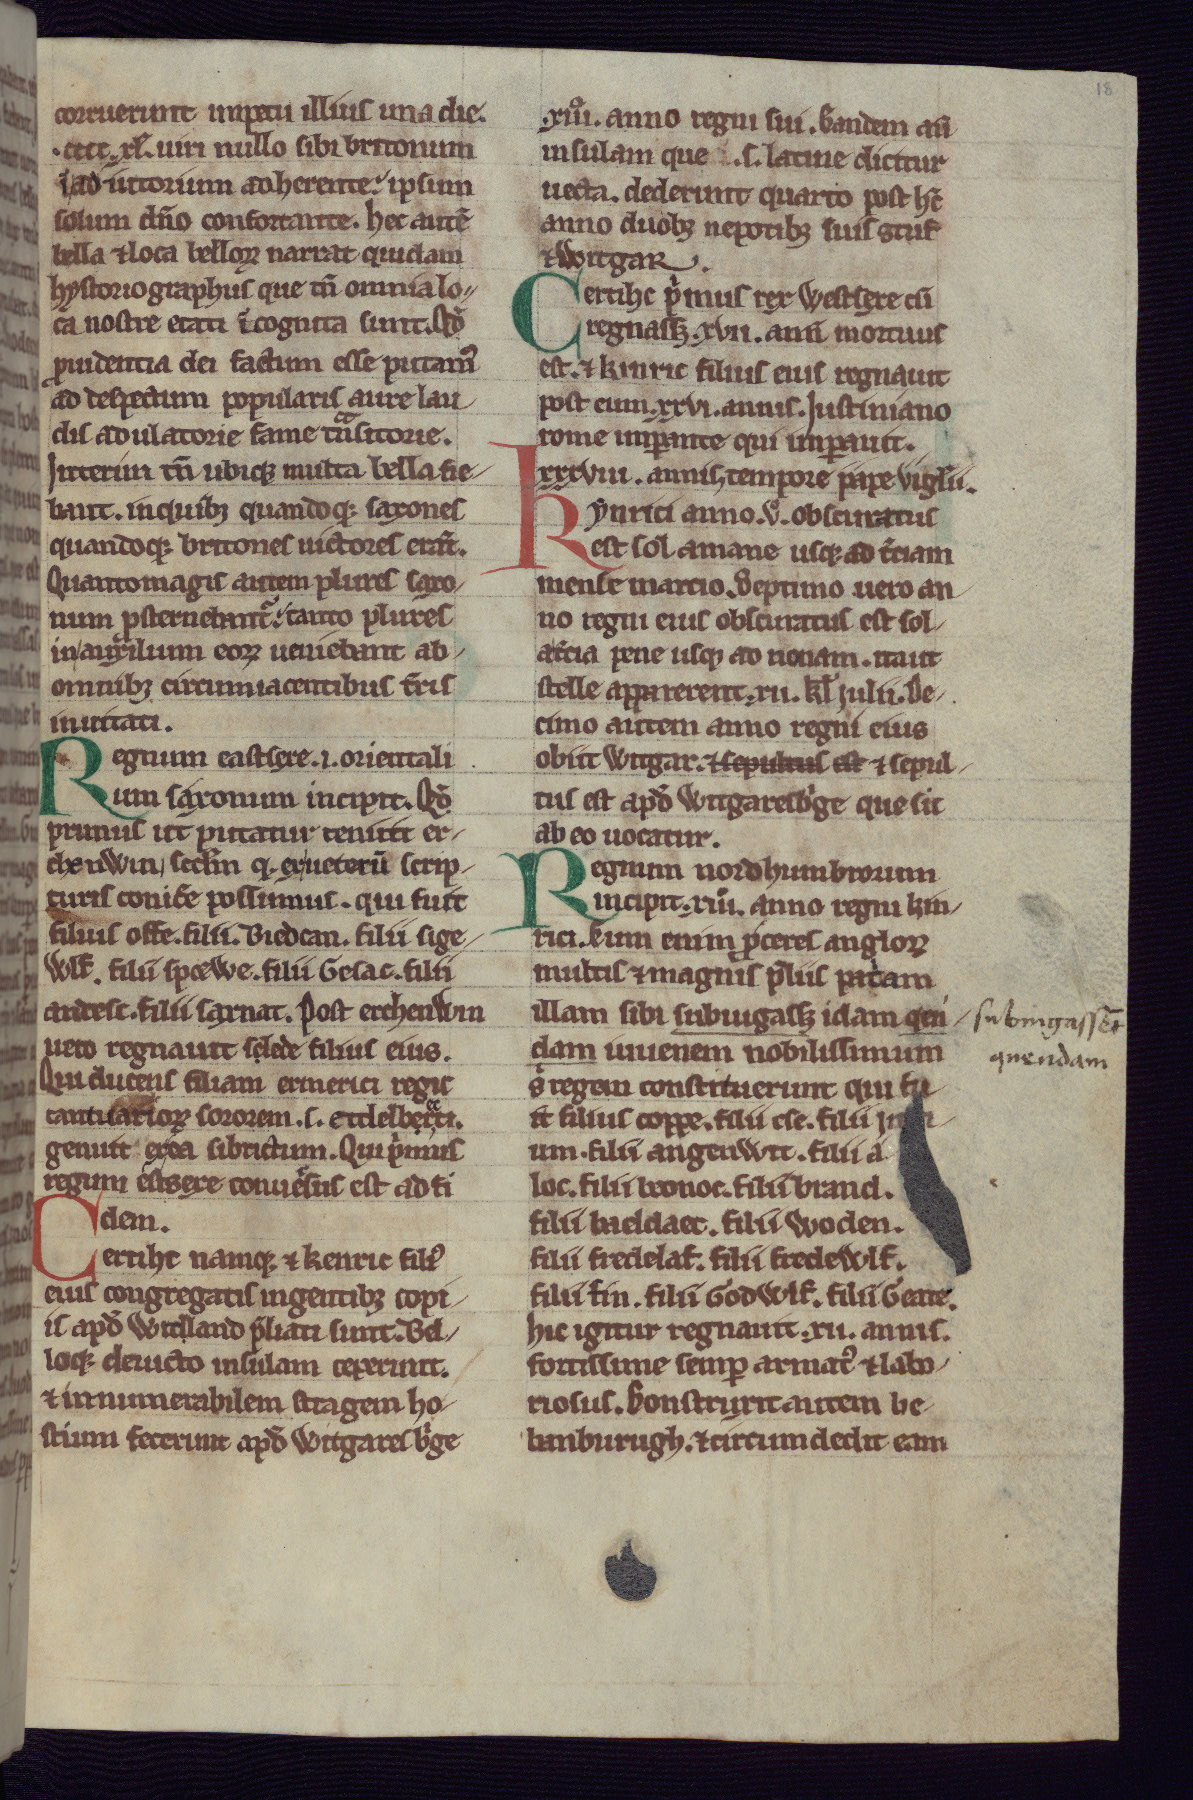 18
corruerunt impetu illius una die.
.cccc.xl. uiri nullo sibi britonum
ad iutorium adherente. ipsum
solum dn̄o confortante. hec autē
bella ⁊ loca belloꝝ narrat quidam
hystoriographus que tn̄ omnia lo-
ca nostre etati īcognita sunt. Qd̄
ꝓuidentia dei factum esse putamꝰ
ad despectum popularis aure lau
dis adulatorie fame tͣnsitorie.
Interim tn̄ ubiqꝫ multa bella fie-
bant. in quibꝫ quandoqꝫ saxones
quandoqꝫ britones uictores erāt.
Quanto magis autem plures saxo-
num ꝓsternebant̉. tanto plures
in auxilium eoꝝ ueniebant ab-
omnibꝫ circumiacentibus t̄ris
inuitati.
Regnum eastsexe .i. orientali
um saxonum incipit. Qd̄
primus ut putatur tenuit er-
chenwin, scđm q̄ ex ueterū scrip-
turis conicē possumus. qui fuit
filius offe. filii. Biedcan. filii sige-
wlf. filii spoewe. filii Gesac. filii
andesc. filii saxnat. Post erchenwin
uero regnauit selede filius eius.
Qui ducens filiam ermerici regis
cantuarioꝝ sororem .s. etdelberti.
genuit ex ea sibrictum. Qui p̄mus
regum estsexe conuersus est ad fi
dem.
Certihc namqꝫ ⁊ kenric filiꝰ
eius congregatis ingentibꝫ copi-
is apd̄ Witland p̄liati sunt. Bel-
loqꝫ deuicto insulam ceperunt.
⁊ innumerabilem stragem ho-
stium fecerunt apd̄ Witgaresbꝰge
.xiiii. anno regni sui. Eandem aū
insulam que .s. latine dicitur
uecta. dederunt quarto post hc̄
anno duobꝫ nepotibꝫ suis stuf
⁊ Witgar.
Certihc p̄mus rex Westsexe cū
regnassꝫ .xvii. ann̄ mortuus
est. ⁊ kinric filius eius regnauit
post eum .xxvi. annis. Iustiniano
rome imꝑante qui imꝑauit.
xxxviii. annis, tempore pape Vigilii.
Kynrici anno .v. obscuratus
est sol a mane usqꝫ ad t̄ciam
mense marcio. Septimo uero an
no regni eius obscuratus est sol-
a t̄cia pene usqꝫ ad nonam. itaut
stelle apparerent .xii. kl̄ Julii. De-
cimo autem anno regni eius
obiit Witgar. ⁊ sepultus est ⁊ sepul-
tus est apd̄ Witgaresbꝰge que sic
ab eo uocatur.
Regnum nordhumbrorum
incipit .xiii. anno regni kin-
rici. Cum enim ꝓceres angloꝝ
multis ⁊ magnis p̄liis patriam
illam sibi subiugassꝫ idam quen
dam iuuenem nobilissimum
s̉ regem constituerunt qui fu
it filius eoppe. filii ese. filii
um. filii angenwit. filii a
loc. filii beonoc. filii brand.
filii baeldaec. filii Woden.
filii fredelaf. filii fredewlf.
filii fin. filii Godwlf. filii Geate.
hic igitur regnauit .xii. annis.
fortissime semꝑ armatꝰ ⁊ labo-
riosus. Construxit autem be-
banburugh. ⁊ circumdedit eam
subiugassēt
quendam